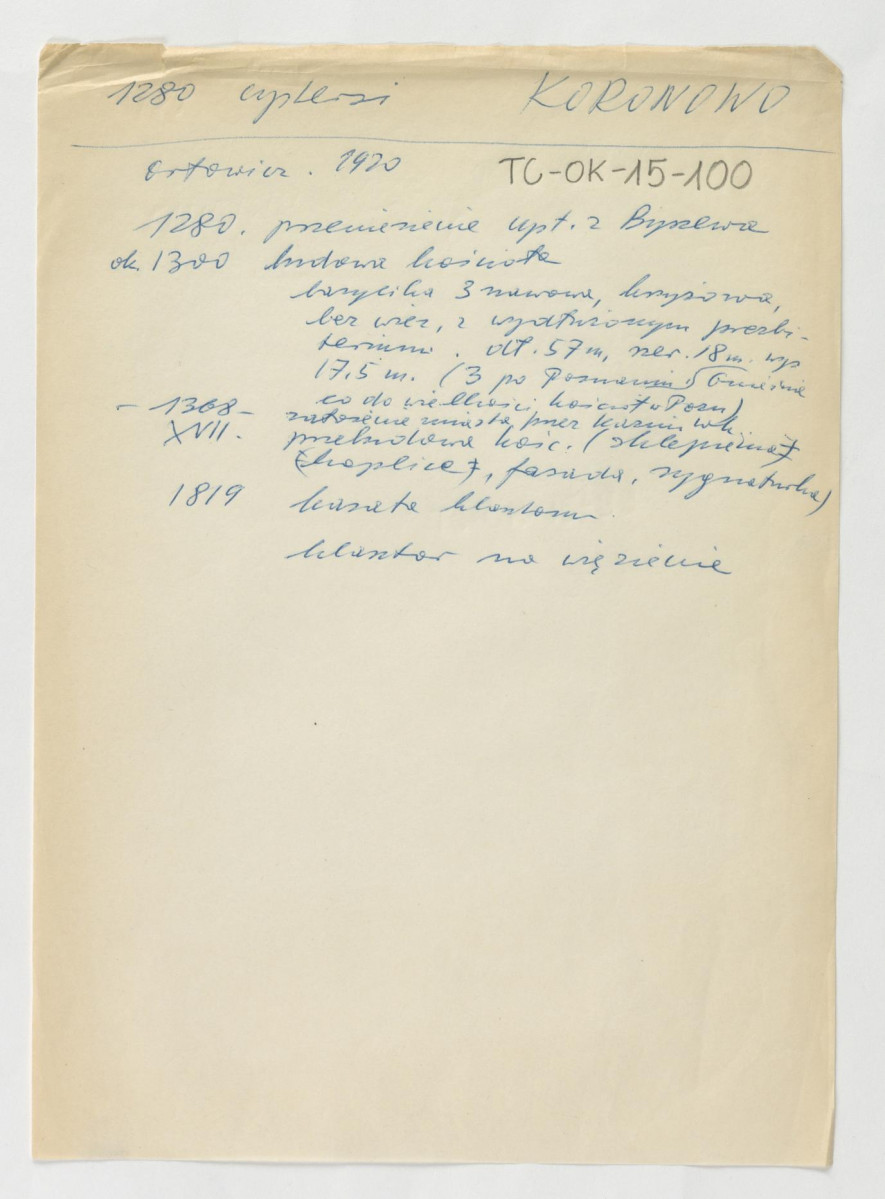 1280 cystersi KORONOWO
Ortowicz. 1920 TC-OK-15-100
1280. przeniesienie cyst. z Byszewa
ok. 1300 budowa kościoła
bazylika 3 nawowa, krzyżowa,
bez wież, z wydłużonym prezbi-
terium. dł. 57m, szer. 18m. wys
17,5 m. (3 po Poznaniu i Gnieźnie
co do wielkości kościół w Pozn)
- 1368 - założenie miasta przez Kazim. Wk.
XVII. przebudowa kośc. (sklepienia
kaplice), fasada, sygnaturka)
1819 kasata klasztoru
klasztor na więzienie